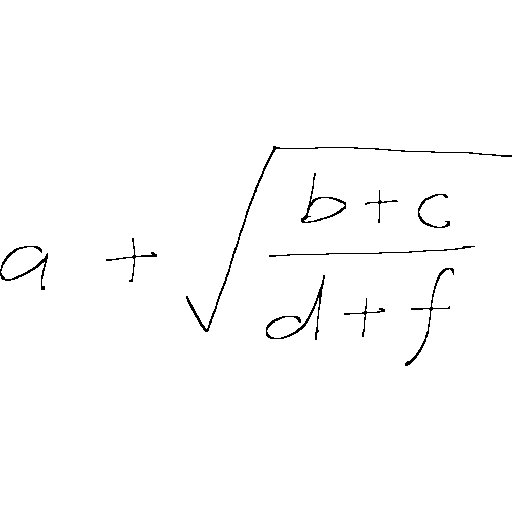 a + \sqrt{\frac{b+c}{d+f}}